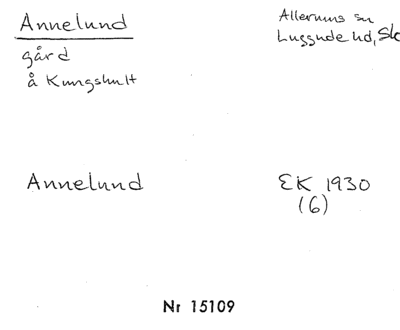 Annelund
gård
å Kungshult
Allerums sn
Luggude hd, Sk
Annelund
EK 1930
(6)
Nr 15109